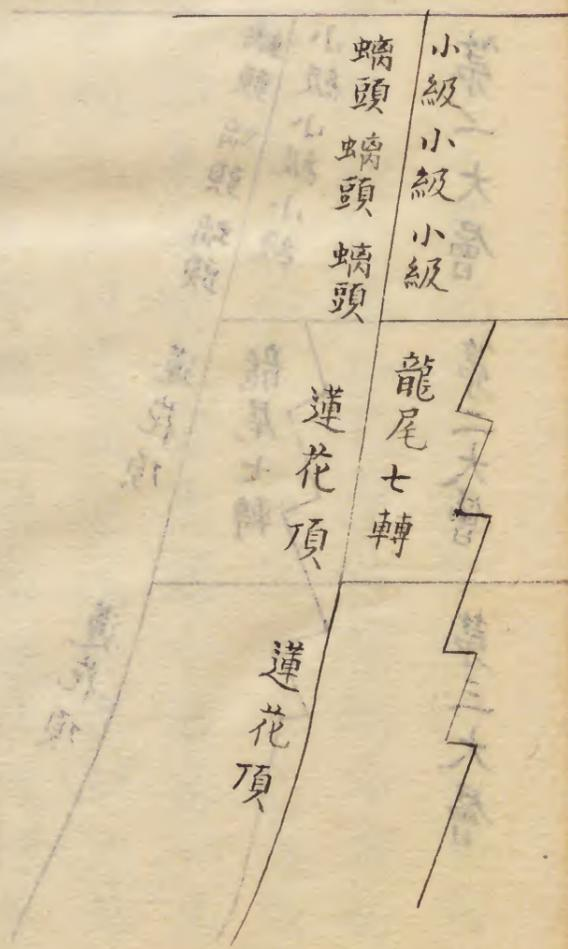 小級小級小級
螭頭螭頭螭頭
龍尾七轉
蓮花頂
蓮花頂